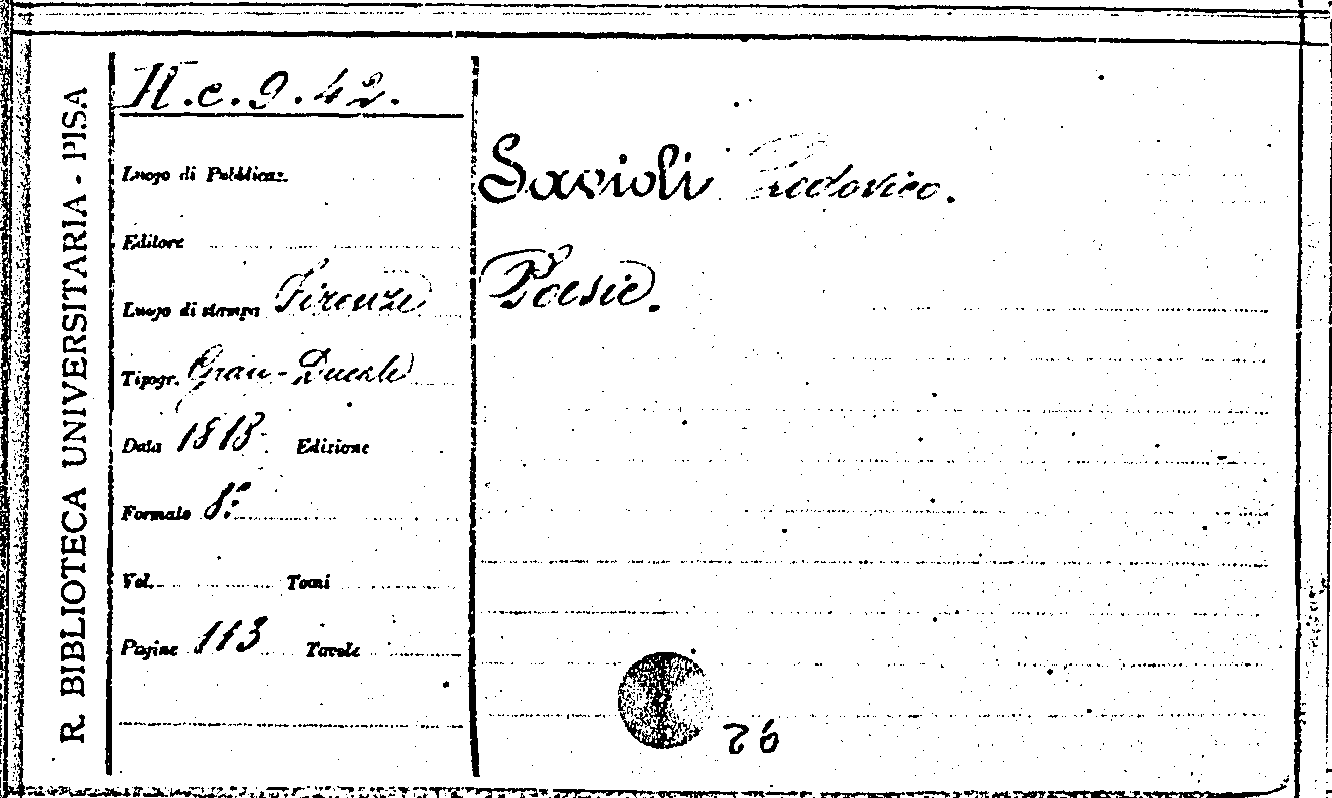 R. BIBLIOTECA UNIVERSITARIA - PISA
H.c.9.42.
Luogo di Pubblicaz.
Editore
Luogo di stampa Firenze
Tipogr. Gran-Ducale
Data 1818 Edizione
Formato 8.°
Vol. Tomi
Pagine 113 Tavole
Savioli Ludovico.
Poesie.